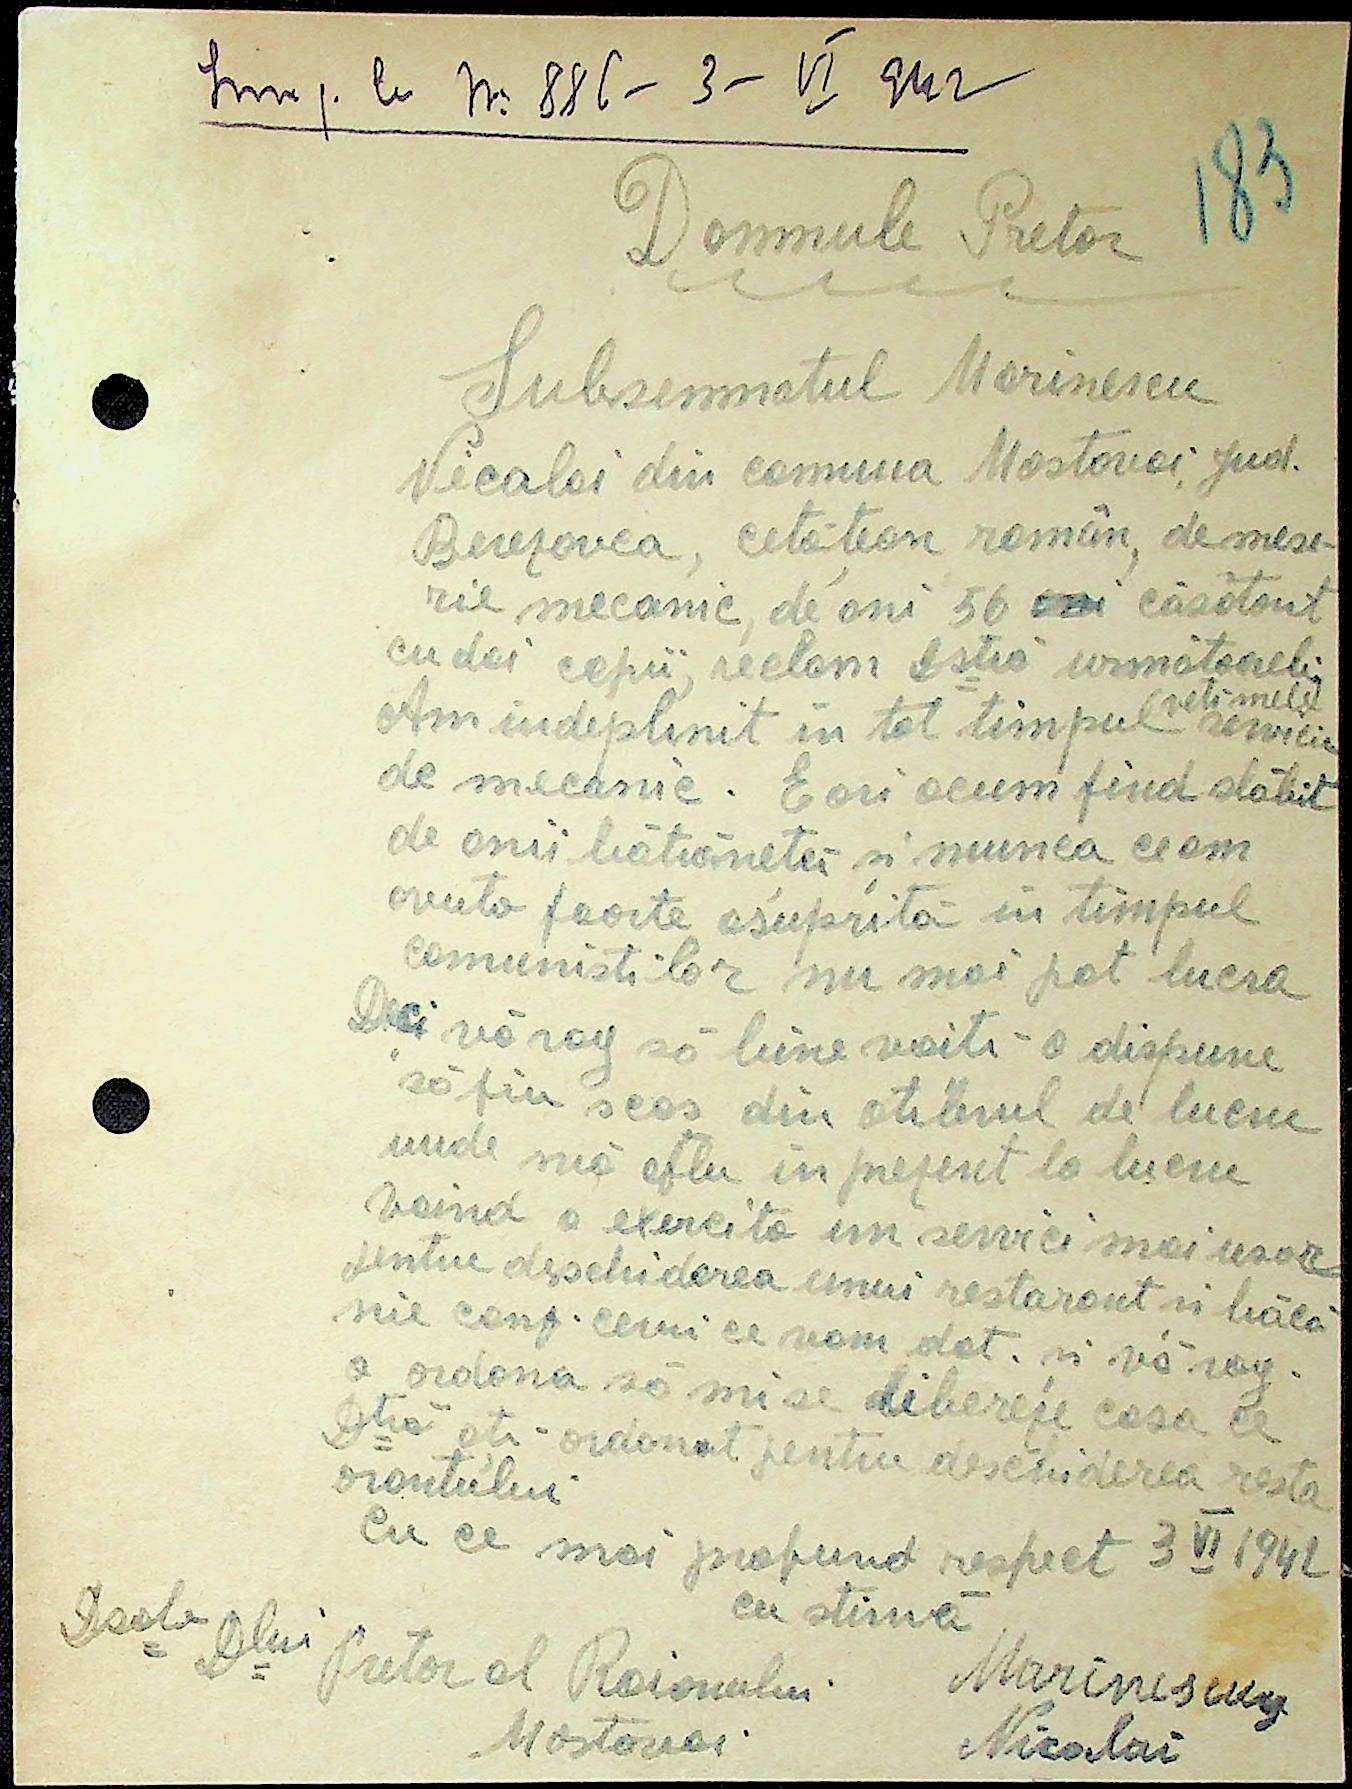 la Nr. 886 - 3 - VI 942
183
Domnule Pretor
Subsemnatul Marinescu
Nicalai din comuna Mostovoi, jud.
Berezovca, cetățean român, de mese-
rie mecanic, de ani 56 căsătorit
cu doi copii, reclam Dstră următoarele:
Am indeplinit in tot timpul vetimelel serviciu
de mecanic. E ari acum fiind slăbit
de anii bătrâneței și munca ce am
avuta foarte asuprită in timpul
comunistilor nu mai pot lucra
Deci vă rog să bine voiti-a dispune
să fiu scos din atilerul de lucru
unde mă aflu in prezent la lucru
voind a exercita un servici mai usor
pentru deschiderea unui restarant si băcă
nie conf. cerui ce vam dat. si vă rog.
a ordona să mi se libereze casa ce
Dtră ati-ordonat pentru deschiderea resta
orantului
Cu ce mai profund respect 3 VI 1942
cu stimă
Dsale Dlui Pretor al Raionului
Mostovoi.
Marinescu
Nicolai